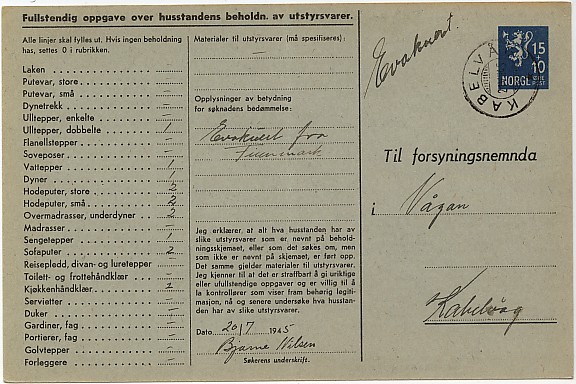 Fullstendig oppgave over husstandens beholdn. av utstyrsvarer.
Alle linjer skal fylles ut. Hvis ingen beholdning
has, settes 0 i rubrikken.
Laken –
Putevar, store –
Putevar, små –
Dynetrekk –
Ulltepper, enkelte –
Ulltepper, dobbelte 1
Flanellstepper –
Soveposer –
Vattepper 1
Dyner 1
Hodeputer, store 2
Hodeputer, små 2
Overmadrasser, underdyner 2
Madrasser –
Sengetepper 1
Sofaputer 2
Reisepledd, divan- og luretepper
Toilett- og frottehåndklær –
Kjøkkenhåndklær
Servietter –
Duker –
Gardiner, fag –
Portierer, fag –
Golvtepper –
Forleggere –
Materialer til utstyrsvarer (må spesifiseres):
–
Opplysninger av betydning
for søknadens bedømmelse:
Evakuert fra
Finnmark
Jeg erklærer, at alt hva husstanden har av
slike utstyrsvarer som er nevnt på behold-
ningsskjemaet, eller som det søkes om, men
som ikke er nevnt på skjemaet, er ført opp.
Det samme gjelder materialer til utstyrsvarer.
Jeg kjenner til at det er straffbart å gi uriktige
eller ufullstendige oppgaver og er villig til å
la kontrollører som viser fram behørig legiti-
masjon, nå og senere undersøke hva husstan-
den har av slike varer.
Dato 20/7 1945
Bjarne Nilsen
Søkerens underskrift.
Evakuert.
15
10
NORGE
KABELVÅG
Til forsyningsnemnda
i Vågan
Kabelvåg